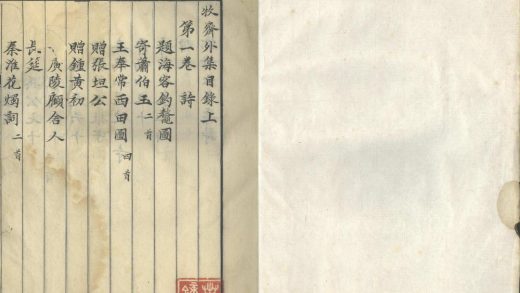 牧齋外集目錄上
第一卷 詩
題海客釣鰲圖
寄蕭伯玉二首
王奉常西田圖四首
贈張坦公
贈鍾黃初
廣陵顧舍人
長筵
秦淮花燭詞二首